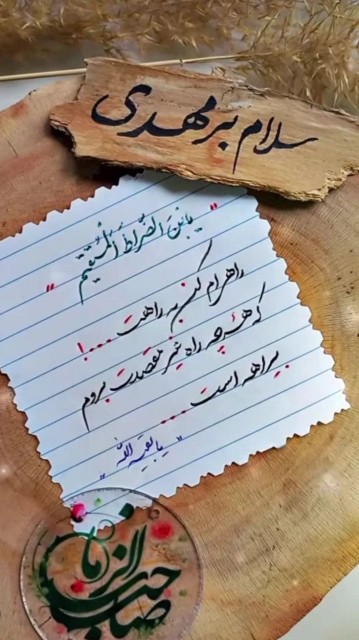 سلام بر مهدی
" یابن الصّراط المُستقیم "
راهرام کن به راهت....!
که هر چه راه غیر مقصدت بروم
بیراهه است....
" یا بقیه الله "
صاحب الزمان